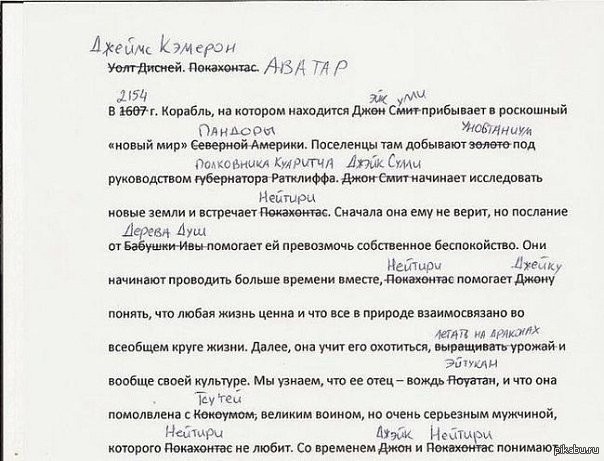 Джеймс Кэмерон
Уолт Дисней. Покахонтас. АВАТАР
2154 эйк улли
В 1607 г. Корабль, на котором находится Джон Смит прибывает в роскошный
ПАНДОРЫ УНОБТАНИУМ
«новый мир» Северной Америки. Поселенцы там добывают золото под
ПОЛКОВНИКА КУОРИТЧА ДЖЭЙК СУЛЛИ
руководством губернатора Ратклиффа. Джон Смит начинает исследовать
НЕЙТИРИ
новые земли и встречает Покахонтас. Сначала она ему не верит, но послание
Дерева Душ
от Бабушки Ивы помогает ей превозмочь собственное беспокойство. Они
Нейтири Джейку
начинают проводить больше времени вместе, Покахонтас помогает Джону
понять, что любая жизнь ценна и что все в природе взаимосвязано во
ЛЕТАТЬ НА ДРАКОНАХ
всеобщем круге жизни. Далее, она учит его охотиться, выращивать урожай и
ЭЙТУКАН
вообще своей культуре. Мы узнаем, что ее отец – вождь Поуатан, и что она
Тсу'тей
помолвлена с Кокоумом, великим воином, но очень серьезным мужчиной,
Нейтири Джэйк Нейтири
которого Покахонтас не любит. Со временем Джон и Покахонтас понимают,
pikabu.ru